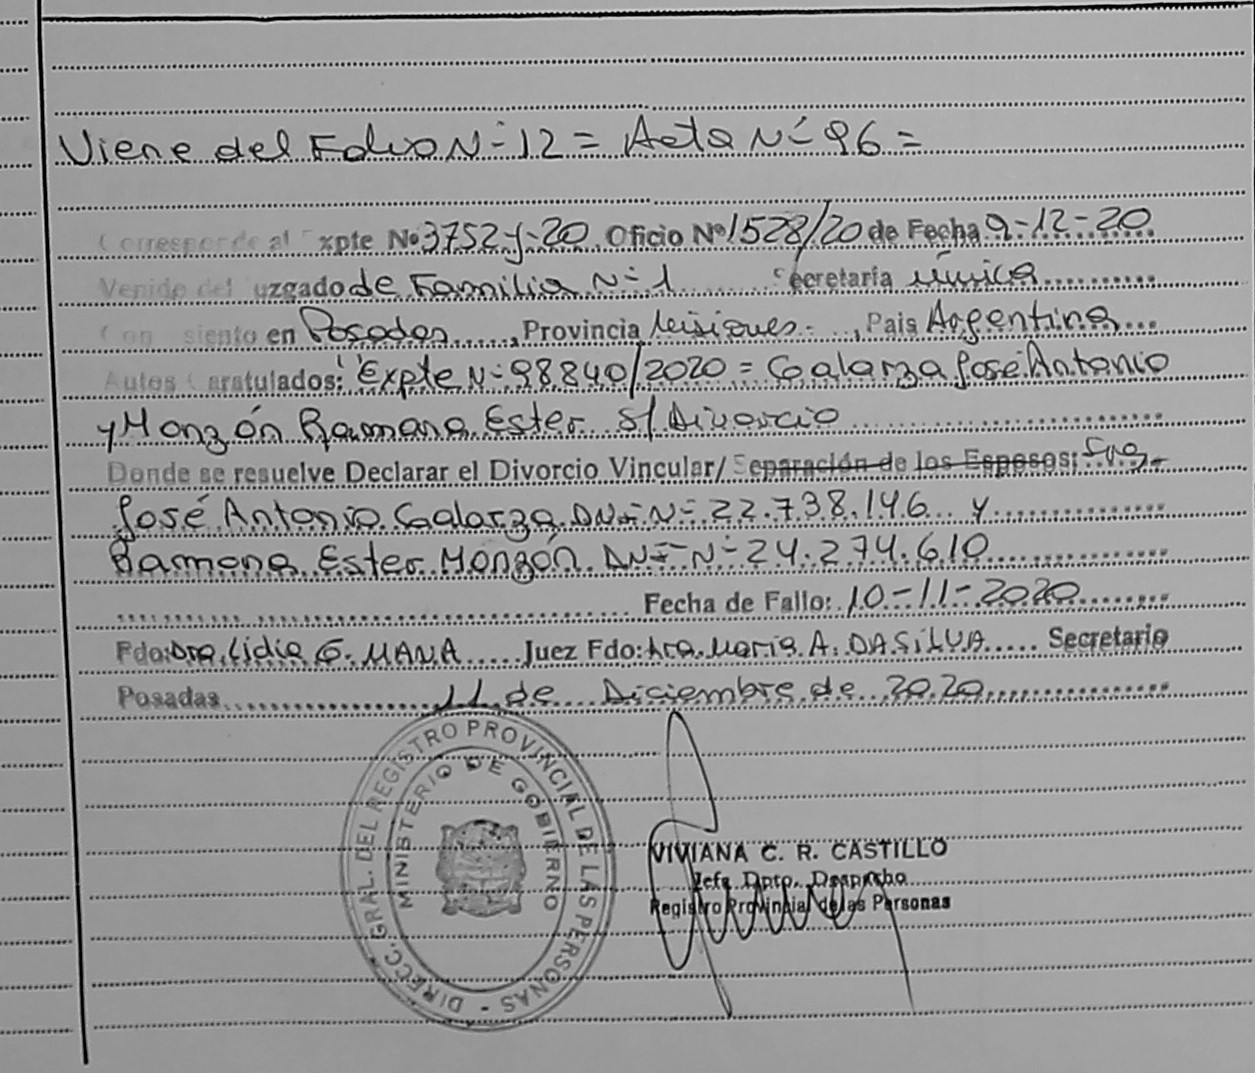 Viene del Folio N= 12 = Acta N= 96 =
Corresponde al Expte Nº 3752-J-20 Oficio Nº 1528/20 de Fecha 9-12-20
Venido del Juzgado de Familia N=1 Secretaría única
Con asiento en Posadas, Provincia Misiones, Pais Argentina
Autos Caratulados: "Expte N= 98840/2020 = Galarza José Antonio
y Monzón Ramona Ester S/Divorcio
Donde se resuelve Declarar el Divorcio Vincular/ Separación de los Esposos:
José Antonio Galarza DNI N= 22.738.146 y
Ramona Ester Monzón DNI N= 24.274.610
Fecha de Fallo: 10-11-2020
Fdo: Dra. Lidia G. MANA Juez Fdo: Dra. Maria A. DASILVA Secretario
Posadas 11 de Diciembre de 2020
DIRECC. GRAL. DEL REGISTRO PROVINCIAL DE LAS PERSONAS -
MINISTERIO DE GOBIERNO
VIVIANA C. R. CASTILLO
Jefa Dpto. Despacho
Registro Provincial de las Personas